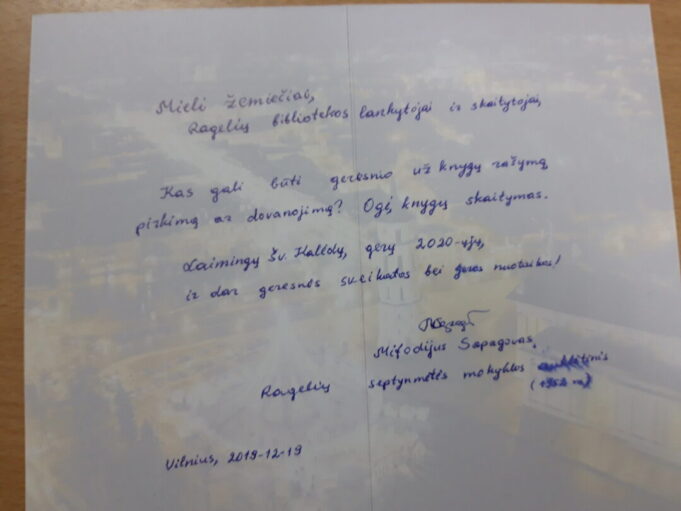 Mieli žemiečiai,
Ragelių bibliotekos lankytojai ir skaitytojai,
Kas gali būti geresnio už knygų rašymą
pirkimą ar dovanojimą? Ogi, knygų skaitymas.
Laimingų Šv. Kalėdų, gerų 2020-ųjų,
ir dar geresnės sveikatos bei geros nuotaikos!
Mifodijus Sapagovas,
Ragelių septynmetės mokyklos auklėtinis
Vilnius, 2019-12-19